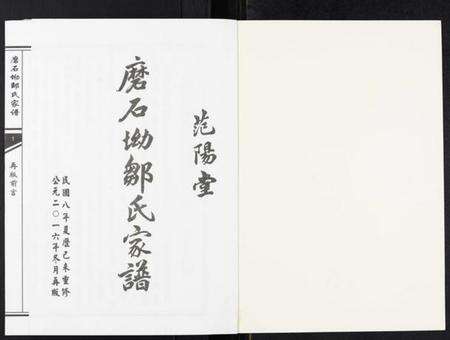 范陽堂
磨石坳鄒氏家譜
民國八年夏曆己未重修
公元二〇一六年冬月再版
磨石坳鄒氏家譜
1
再版前言